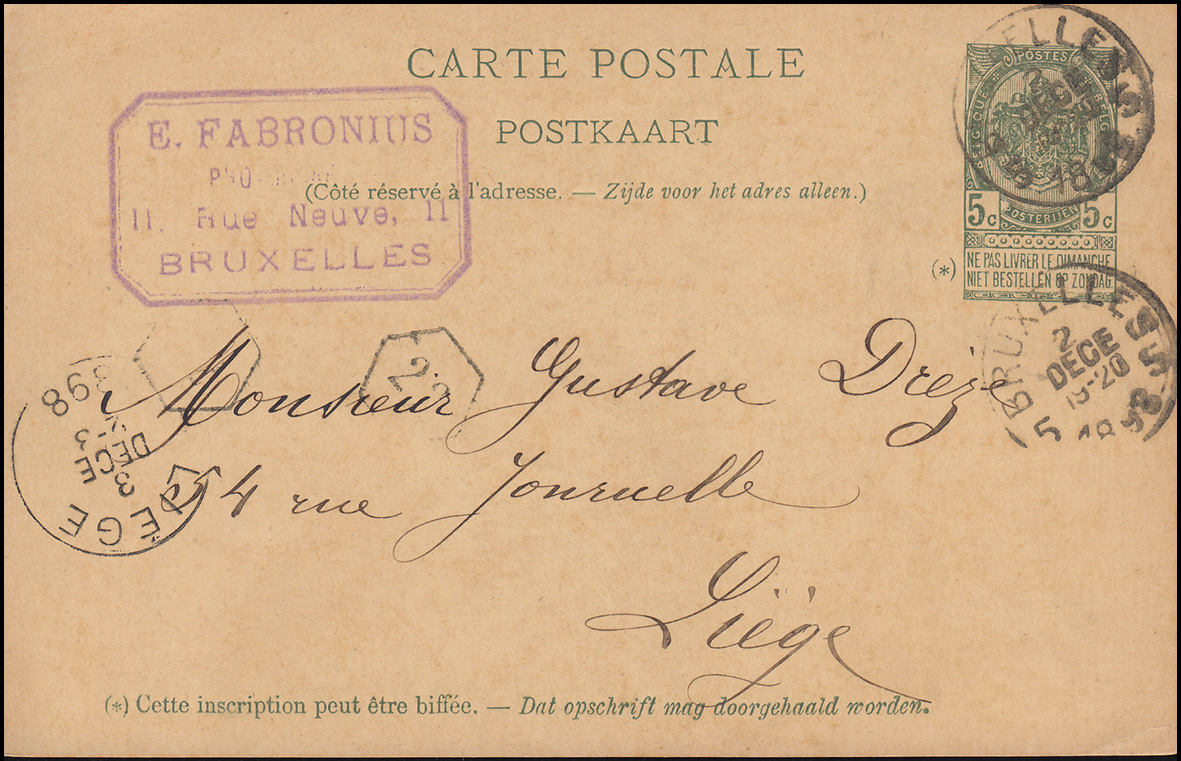 CARTE POSTALE
POSTKAART
(Côté réservé à l'adresse. — Zijde voor het adres alleen.)
E. FABRONIUS
11, Rue Neuve, 11
BRUXELLES
POSTES
5c POSTERIJEN 5c
(*) NE PAS LIVRER LE DIMANCHE
NIET BESTELLEN OP ZONDAG.
2
DECE
BRUXELLES 5
2
DECE
19-20
5 1898
22
Monsieur Gustave Drèze
54 rue Jonruelle
Liège
3
DECE
898
(*) Cette inscription peut être biffée. — Dat opschrift mag doorgehaald worden.